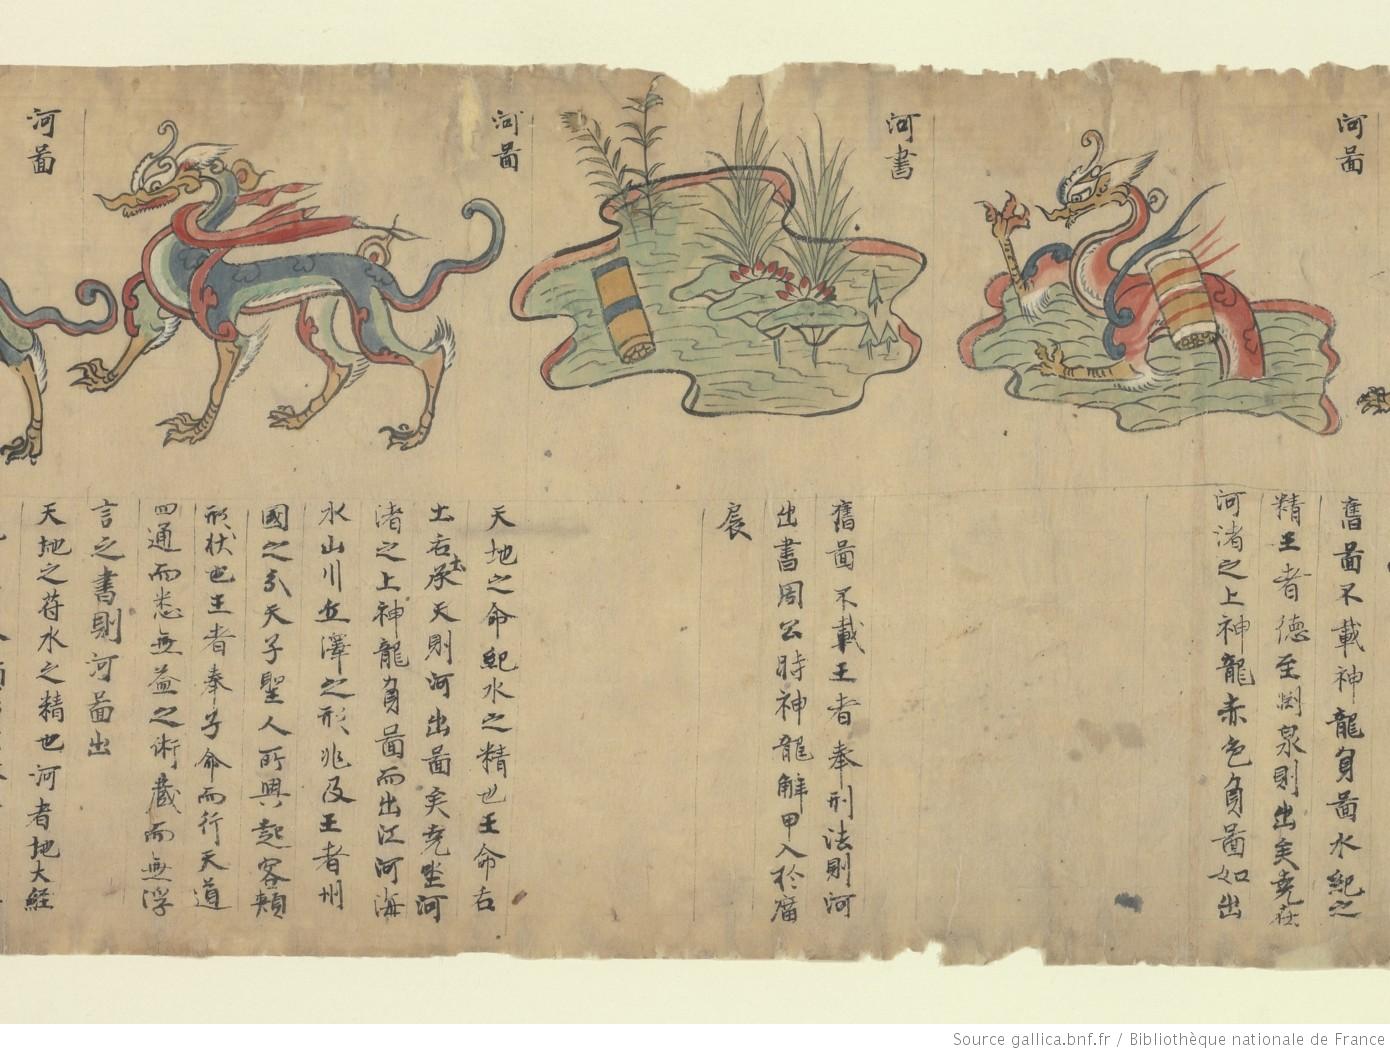 河圖
舊啚不載神龍負啚水紀之
精王者德至渕泉則出矣堯在
河渚之上神龍赤色負啚如出
河書
舊啚不載王者奉刑法則河
出書周公時神龍解甲入於
扆
河圖
天地之命紀水之精也王命右
土右承天則河出啚矣堯坐河
渚之上神龍負啚而出江河海
水山川丘澤之形兆及王者州
國之分天子聖人所興起容頰
形狀也王者奉子命而行天道
四通而悉無益之術藏而無浮
言之書則河啚出
河圖
天地之苻水之精也河者地大経
Source gallica.bnf.fr / Bibliothèque nationale de France